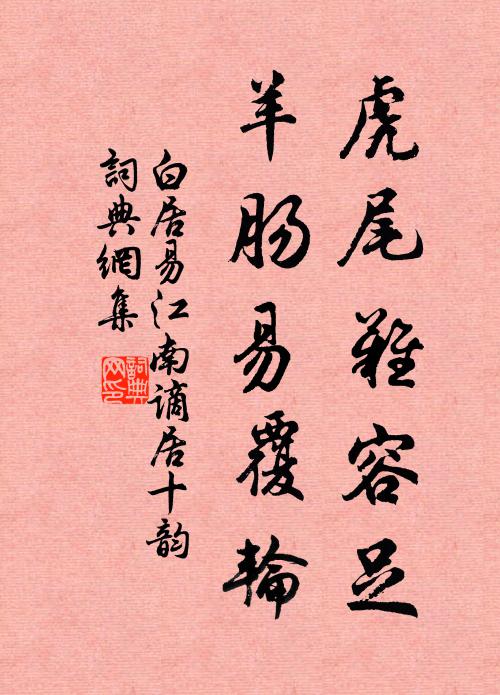 虎尾難容足
羊腸易覆輪
白居易江南謫居十韵
詞典網集
詞典網印